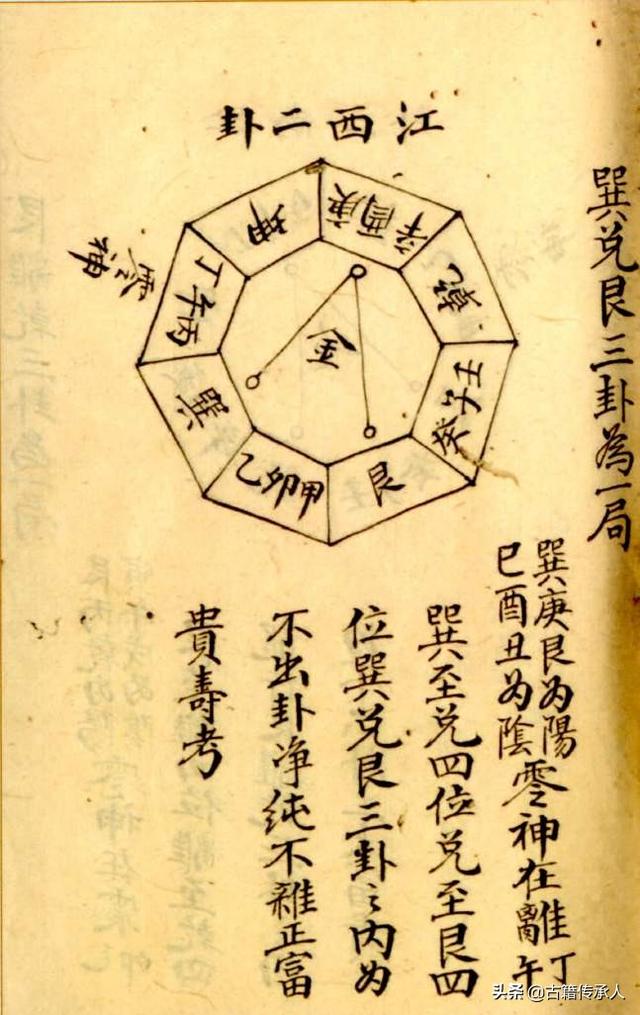 巽兑艮三卦為一局
江西二卦
坤
庚酉辛
乾
壬子癸
艮
甲卯乙
巽
丙午丁
零神
金
巽庚艮为陽
巳酉丑为陰零神在離丁午
巽至兑四位兑至艮四
位巽兑艮三卦之内为
不出卦净纯不雜正富
貴壽考
头条@古籍传承人